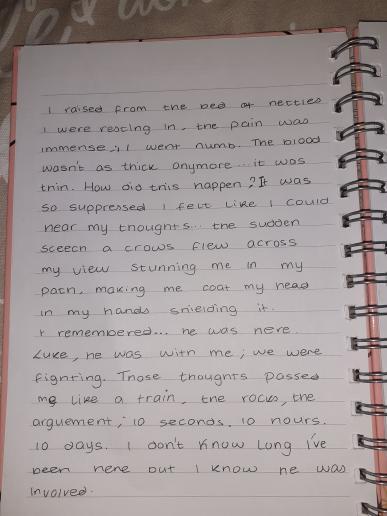 I raised from the bed of nettles
I were resting in, the pain was
immense, I went numb. The blood
wasn't as thick anymore... it was
thin. How did this happen? It was
so suppressed I felt like I could
hear my thoughts... the sudden
sceech a crows flew across
my view stunning me in my
path, making me coat my head
in my hands shielding it.
I remembered... he was here.
Luke, he was with me; we were
fighting. Those thoughts passed
me like a train, the rocks, the
arguement; 10 seconds. 10 hours.
10 days. I don't know long I've
been here but I know he was
involved.